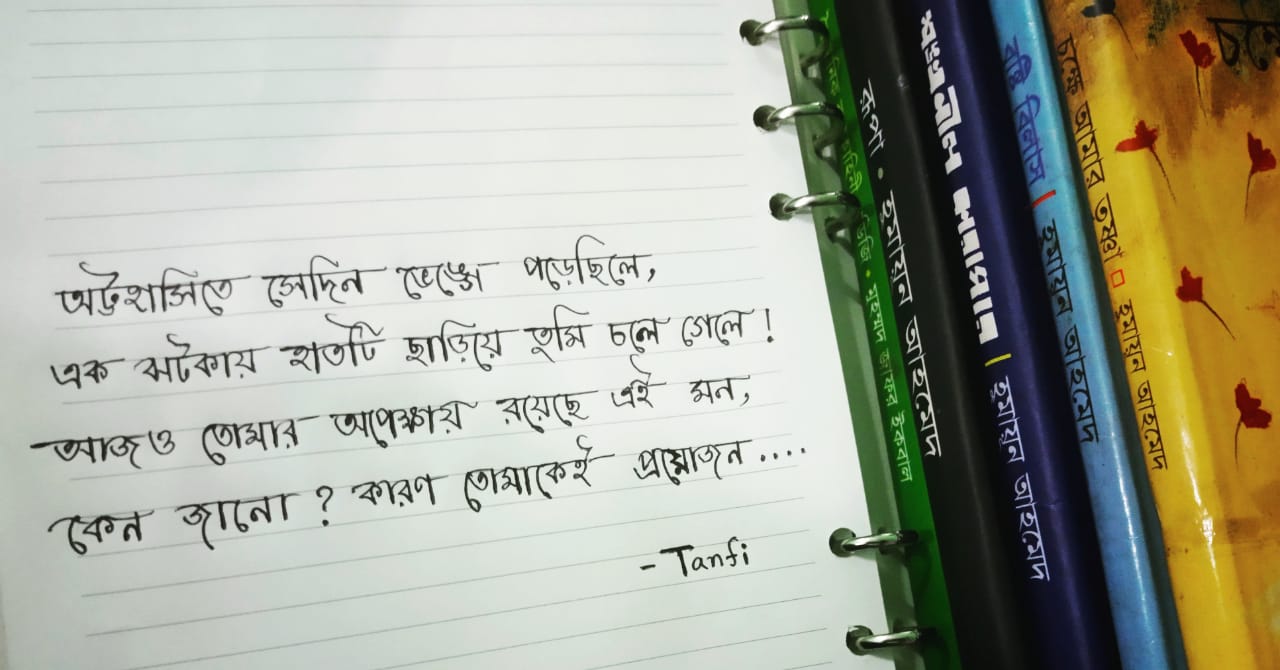 অট্টহাসিতে সেদিন ভেঙ্গে পড়েছিলে,
এক ঝটকায় হাতটি ছাড়িয়ে তুমি চলে গেলে !
আজও তোমার অপেক্ষায় রয়েছে এই মন,
কেন জানো ? কারণ তোমাকেই প্রয়োজন ....
- Tanfi
মুহম্মদ জাফর ইকবাল
রূপা • হুমায়ূন আহমেদ
হুমায়ূন আহমেদ
বৃষ্টি বিলাস | হুমায়ূন আহমেদ
চক্ষে আমার তৃষ্ণা □ হুমায়ূন আহমেদ